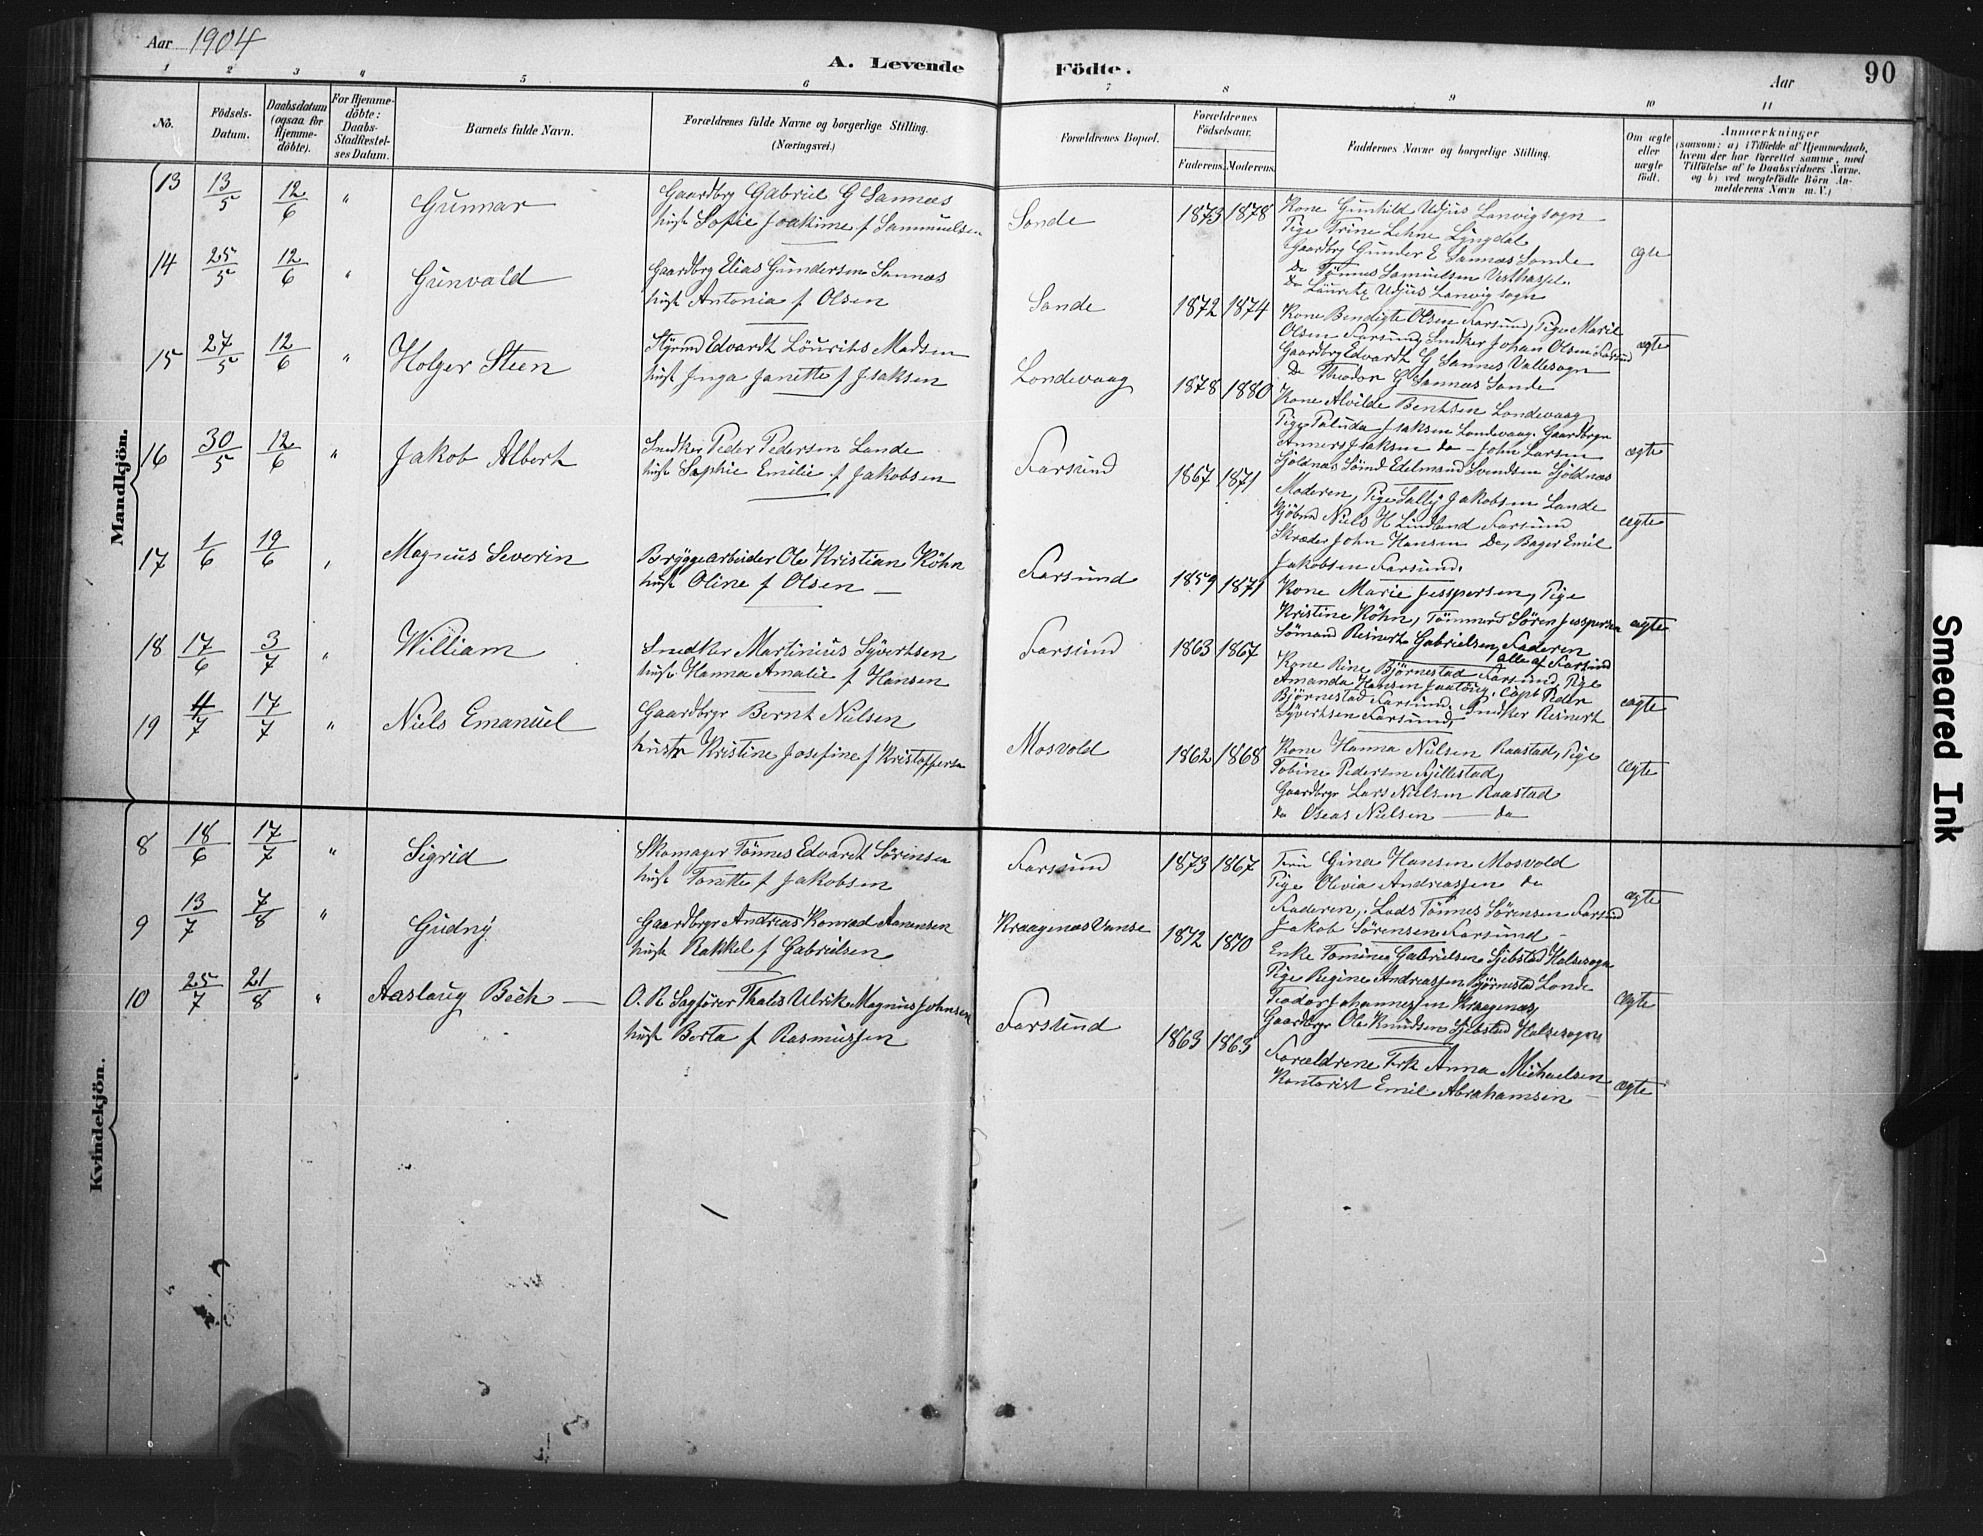 Aar 1904
A. Levende Födte.
Aar
90
1 2 3 4 5 6 7 8 9 10 11
No.
Födsels-Datum.
Daabsdatum (ogsaa for Hjemme-döbte).
For Hjemme-döbte: Daabs-Stadfestel-ses Datum.
Barnets fulde Navn.
Forældrenes fulde Navne og borgerlige Stilling. (Næringsvei.)
Forældrenes Bopæl.
Forældrenes Födselsaar.
Faderens. Moderens.
Faddernes Navne og borgerlige Stilling.
Om ægte eller uægte födt.
Anmærkninger
(saasom: a) i Tilfælde af Hjemmedaab, hvem der har forrettet samme, med Tilföielse af to Daabsvidners Navne, og b) ved uegtefödte Börn An-melderens Navn m. V.)
Mandkjön.
13 13/5 12/6 " Gunnar
Gaardbrg Gabriel G Sannæs
hust Sofie Joakime f Sammuelsen
Sande 1873 1878
Kone Gunhild Udjus Lanvig sogn
Pige Trine Lehne Lyngdal
Gaardbrg Gunder E Sannæs Sande
Do Tönnes Samuelsen Vesthassel.
Do Lauritz Udjus Lanvig sogn
ægte
14 25/5 12/6 " Gunvald
Gaardbrg Elias Gundersen Sannæs
hust Antonia f Olsen
Sande 1872 1874
Kone Bendigte Olsen Farsund, Pige Marie
Olsen Farsund, Snedker Johan Olsen Farsund
Gaardbrg Edvardt G Sannes Vallesogn
Do Theodor G Sannæs Sande
ægte
15 27/5 12/6 " Holger Steen
Styrmd Edvardt Löurits Madsen
hust Inga Janette f Isaksen
Londevaag 1878 1880
Kone Alvilde Bentsen Londevaag
Pige Paluda Isaksen Londevaag. Gaardbrgr
Anners Isaksen do — John Larsen
Sjöldnæs Sömd Edelmand Svendsen Sjöldnæs
ægte
16 30/5 12/6 " Jakob Albert
Snedker Peder Pedersen Lande
hust Sophie Emilie f Jakobsen
Farsund 1867 1871
Moderen, Pige Sally Jakobsen Lande
Kjöbmd Niels H Lindland Farsund
Skræder John Hansen Do, Bager Emil
Jakobsen Farsund.
ægte
17 1/6 19/6 " Magnus Severin
Bryggearbeider Ole Kristian Köhn
hust Oline f Olsen —
Farsund 1859 1871
Kone Marie Jesspersen, Pige
Kristine Köhn, Tömmermd Sören Jesspersen
Sömand Reinert Gabrielsen, Faderen
alle af Farsund
ægte
18 17/6 3/7 " William
Snedker Martinius Syvertsen
hust Hanna Amalie f Hansen
Farsund 1863 1867
Kone Rine Björnestad Farsund, Pige
Amanda Hansen, Capt Peder
Björnestad Farsund. Snedker Reinert
Syvertsen Farsund,
ægte
19 4/7 17/7 " Niels Emanuel
Gaardbrgr Bernt Nielsen
hustr Kristine Josefine f Kristoffersen
Mosvold 1862 1868
Kone Hanna Nielsen Raastad, Pige
Tobine Pedersen Fjillestad,
Gaardbrgr Lars Nielsen Raastad
do Oseas Nielsen — do
ægte
Kvindekjön.
8 18/6 17/7 " Sigrid
Skomager Tönnes Edvardt Sörensen
hust Tonette f Jakobsen
Farsund 1873 1867
Fru Gina Hansen Mosvold
Pige Olivia Andreassen do
Faderen, Lods Tönnes Sörensen Farsund
Jakob Sörensen Farsund —
ægte
9 13/7 7/8 " Gudny
Gaardbrgr Andreas Konrad Aanensen
hust Rakkel f Gabrielsen
Kraagenæs Vanse 1872 1870
Enke Tomine Gabrielsen Sjebstad Halsesogn
Pige Regine Andreassen Björnestad Londe
Teodor Johannessen Kraagenæs,
Gaardbrgr Ole Knudsen Sjebstad Halsesogn
ægte
10 25/7 21/8 " Aaslaug Bech —
O. R. Sagförer Thales Ulrik Magnus Johnsen
hust Berta f Rasmussen
Farsund 1863 1863
Forældrene Frk Anna Michaelsen
Kontorist Emil Abrahamsen —
ægte
Smeared Ink